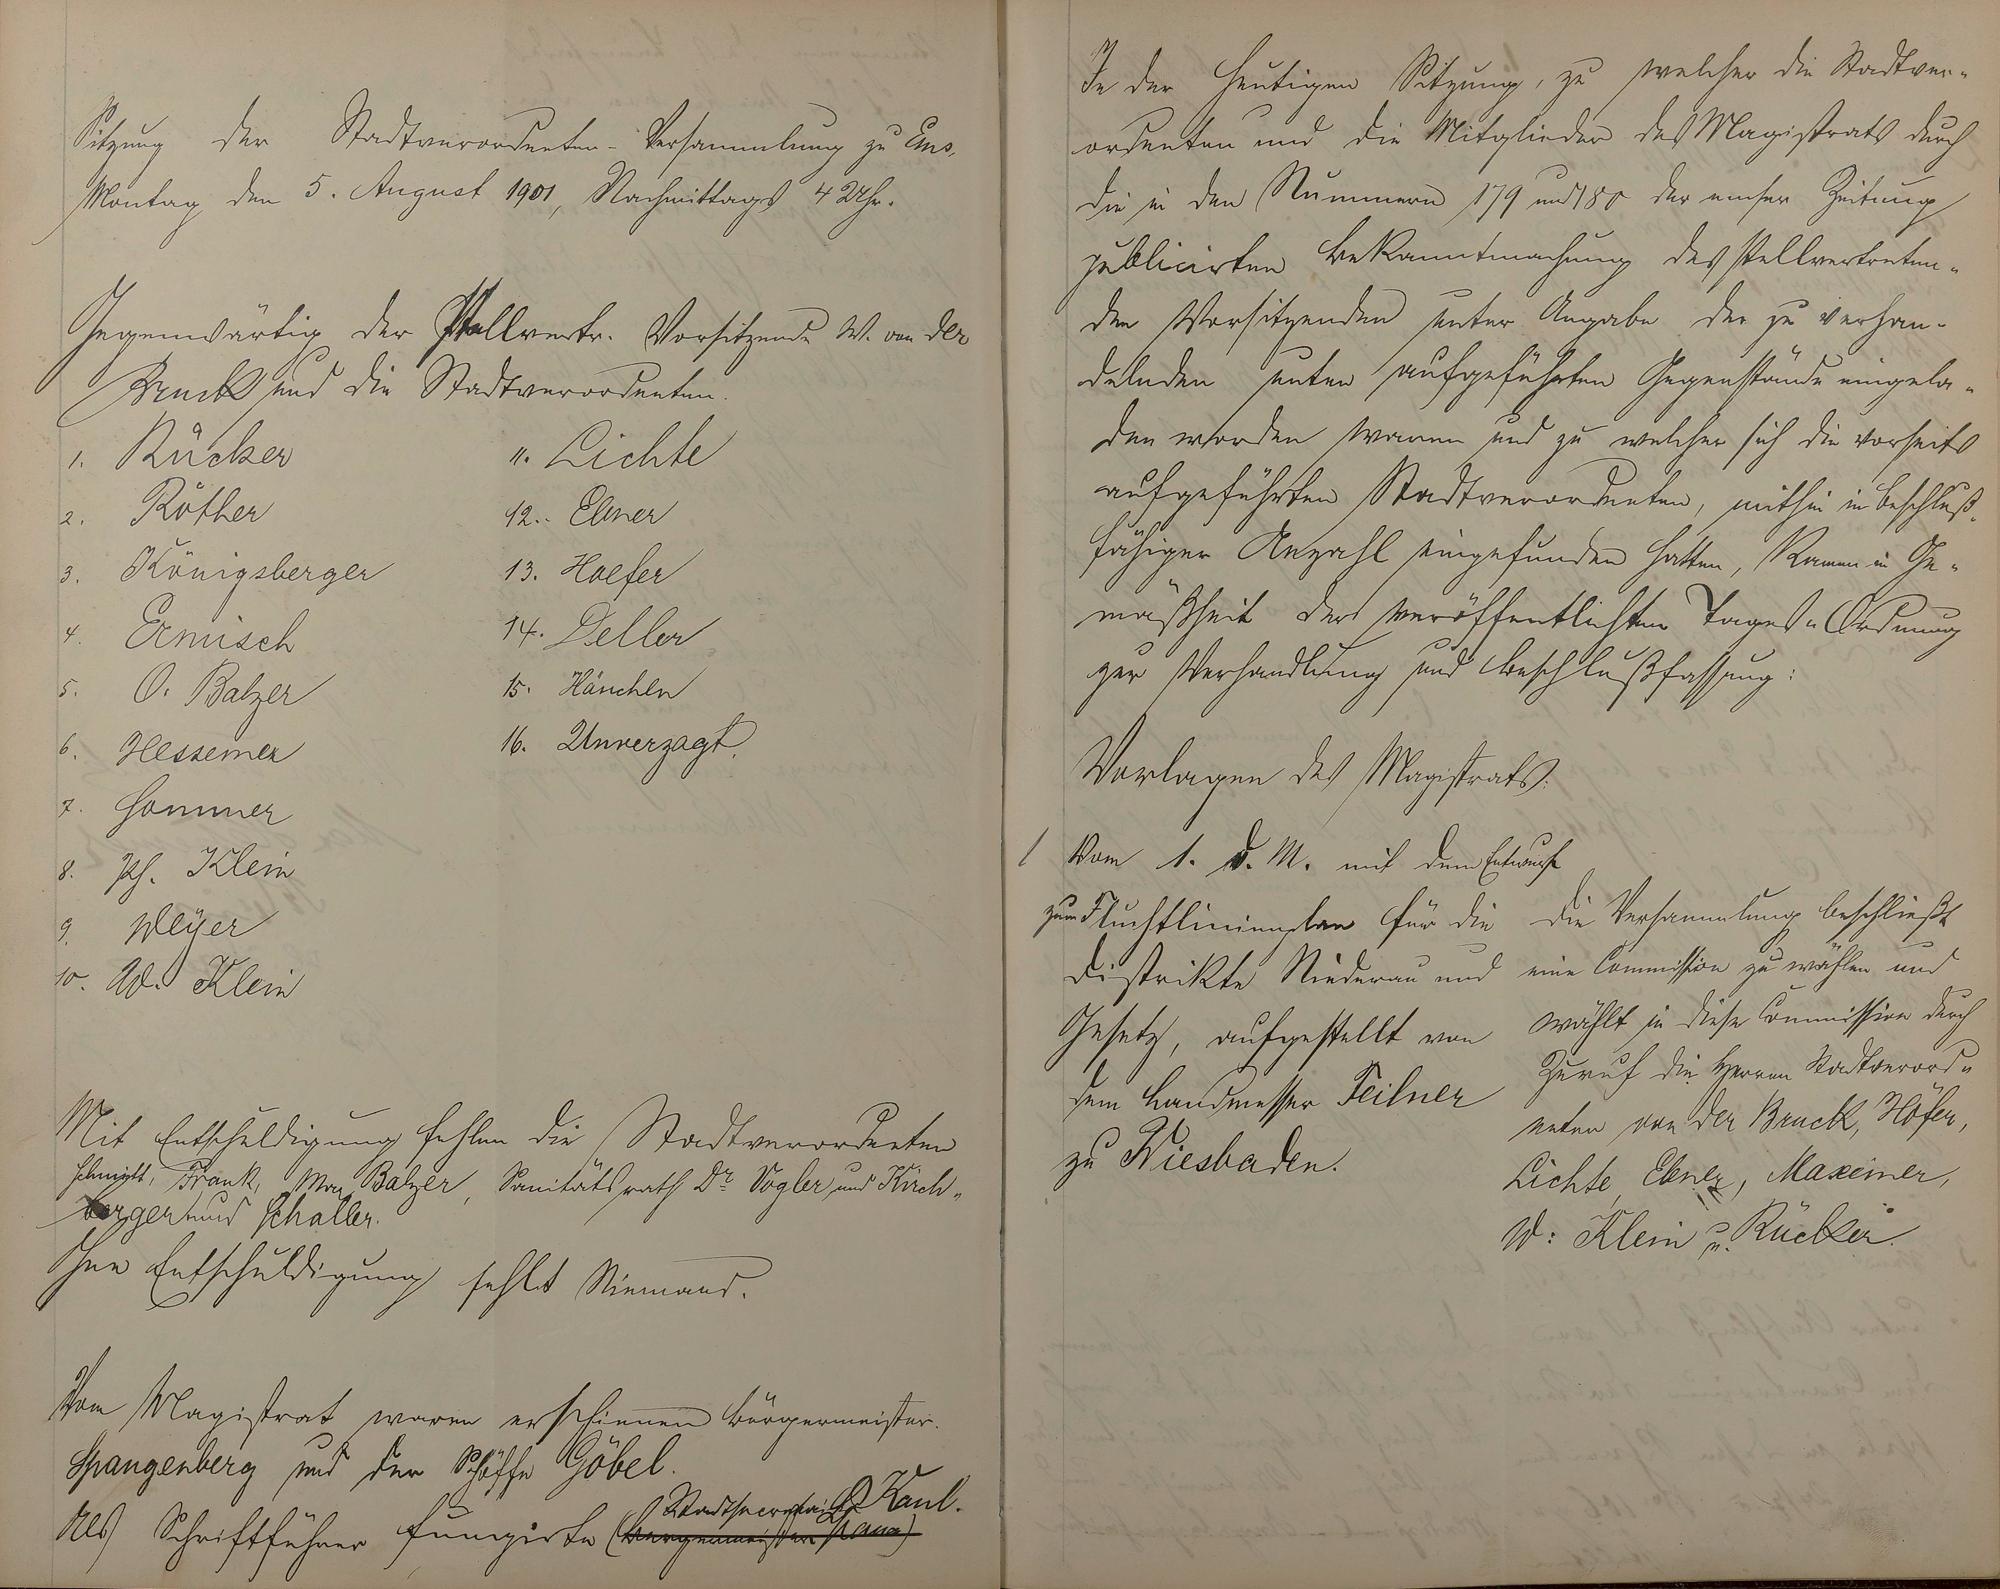 Sitzung der Stadtverordneten-Versammlung zu Ems,
Montag den 5. August 1901, Nachmittags 4 Uhr.
Gegenwärtig der Stellvertr. Vorsitzende W. von der
Bruck und die Stadtverordneten.
1. Rücker
2. Röther
3. Königsberger
4. Ermisch
5. O. Balzer
6. Hessemer
7. Sommer
8. Ph. Klein
9. Weyer
10. Wd. Klein
11. Lichte
12. Ebner
13. Hoefer
14. Deller
15. Hänchen
16. Unverzagt.
Mit Entschuldigung fehlen die Stadtverordneten
Schmidt, Frank, Max Balzer, Sanitätsrath Dr. Vogler und Kirch-
berger und Schaller.
Ohne Entschuldigung fehlt Niemand.
Vom Magistrat waren erschienen Bürgermeister
Spangenberg und der Schöffe Göbel.
Stadtsecretair Kaul.
Als Schriftführer fungirte (Bürgermeister
In der heutigen Sitzung, zu welcher die Stadtver-
ordneten und die Mitglieder des Magistrats durch
die in den Nummern 179 und 180 der emser Zeitung
publicirten Bekanntmachung des stellvertreten-
den Vorsitzenden unter Angabe der zu verhan-
delnden unten aufgeführten Gegenstände eingela-
den worden waren und zu welcher sich die vorseits
aufgeführten Stadtverordneten, mithin in beschluß-
fähiger Anzahl eingefunden hatten, kamen in Ge-
mäßheit der veröffentlichten Tages-Ordnung
zur Verhandlung und Beschlußfassung:
Vorlagen des Magistrats:
1 Vom 1. d. M. mit dem Entwurfe
zum Fluchtlinienplan für die
Distrikte Niederau und
Gesetz, aufgestellt von
dem Landmesser Feilner
zu Wiesbaden.
Die Versammlung beschließt
eine Commission zu wählen und
wählt in diese Commission durch
Zuruf die Herren Stadtverord-
neten von der Bruck, Höfer,
Lichte, Ebner, Maxeiner,
W: Klein u. Rücker.